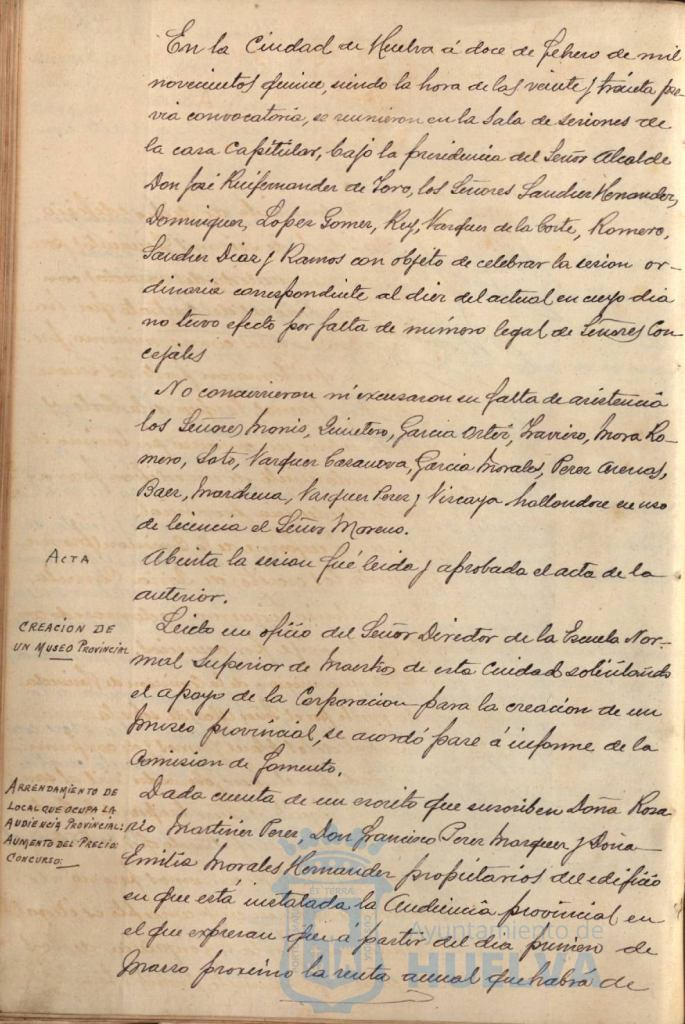 En la Ciudad de Huelva á doce de febrero de mil
novecientos quince, siendo la hora de las veinte y treinta pre-
via convocatoria, se reunieron en la Sala de sesiones de
la casa Capitular, bajo la presidencia del Señor Alcalde
Don José Ruifernandez de Toro, los Señores Sanchez Hernandez,
Dominguez, Lopez Gomez, Rey, Vazquez de la Corte, Romero,
Sanchez Diaz y Ramos con objeto de celebrar la sesion or-
dinaria correspondiente al diez del actual en cuyo dia
no tuvo efecto por falta de número legal de Señores Con
cejales
No concurrieron ni excusaron su falta de asistencia
los Señores Monis, Quintero, Garcia Ortiz, Traviezo, Mora Ro-
mero, Soto, Vazquez Casanova, Garcia Morales, Perez Arenas,
Baez, Marchena, Vazquez Perez y Vizcaya hallandose en uso
de licencia el Señor Moreno.
ACTA
Abierta la sesion fué leida y aprobada el acta de la
anterior.
CREACION DE
UN MUSEO PROVINCIAL
Leido un oficio del Señor Director de la Escuela Nor-
mal Superior de Maestros de esta Ciudad solicitando
el apoyo de la Corporacion para la creacion de un
Museo provincial, se acordó pase á informe de la
Comision de Fomento.
ARRENDAMIENTO DE
LOCAL QUE OCUPA LA
AUDIENCIA PROVINCIAL:
AUMENTO DEL PRECIO:
CONCURSO:
Dada cuenta de un escrito que suscriben Doña Rosa
rio Martinez Perez, Don Francisco Perez Marquez y Doña
Emilia Morales Hernandez propietarios del edificio
en que está instalada la Audiencia provincial en
el que expresan que á partir del dia primero de
Marzo proximo la renta anual que habrá de
Ayuntamiento de
HUELVA